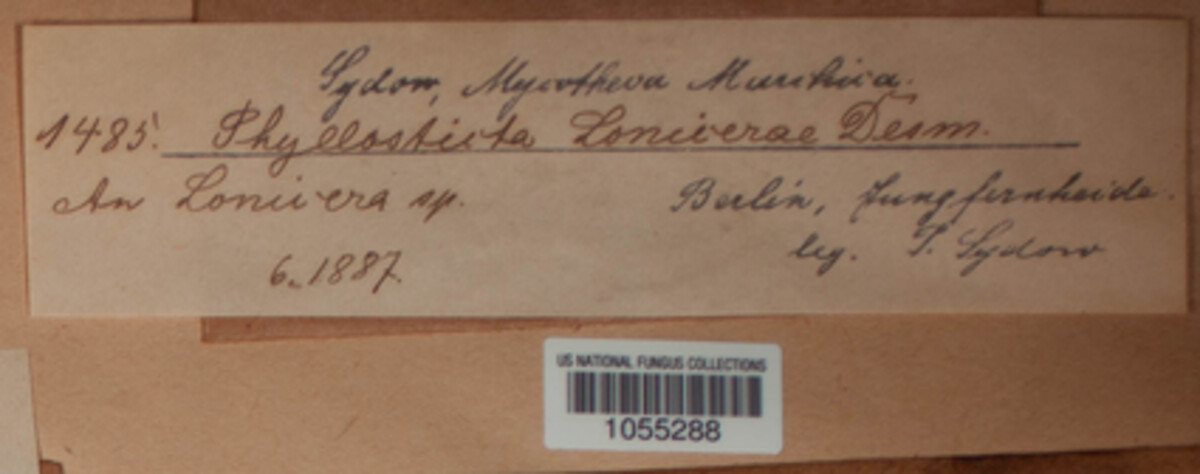 Sydow, Mycotheca Marchica.
1485. Phyllosticta Lonicerae Desm.
An Lonicera sp.
Berlin, Jungfernheide.
6. 1887.
leg. P. Sydow
US NATIONAL FUNGUS COLLECTIONS
1055288